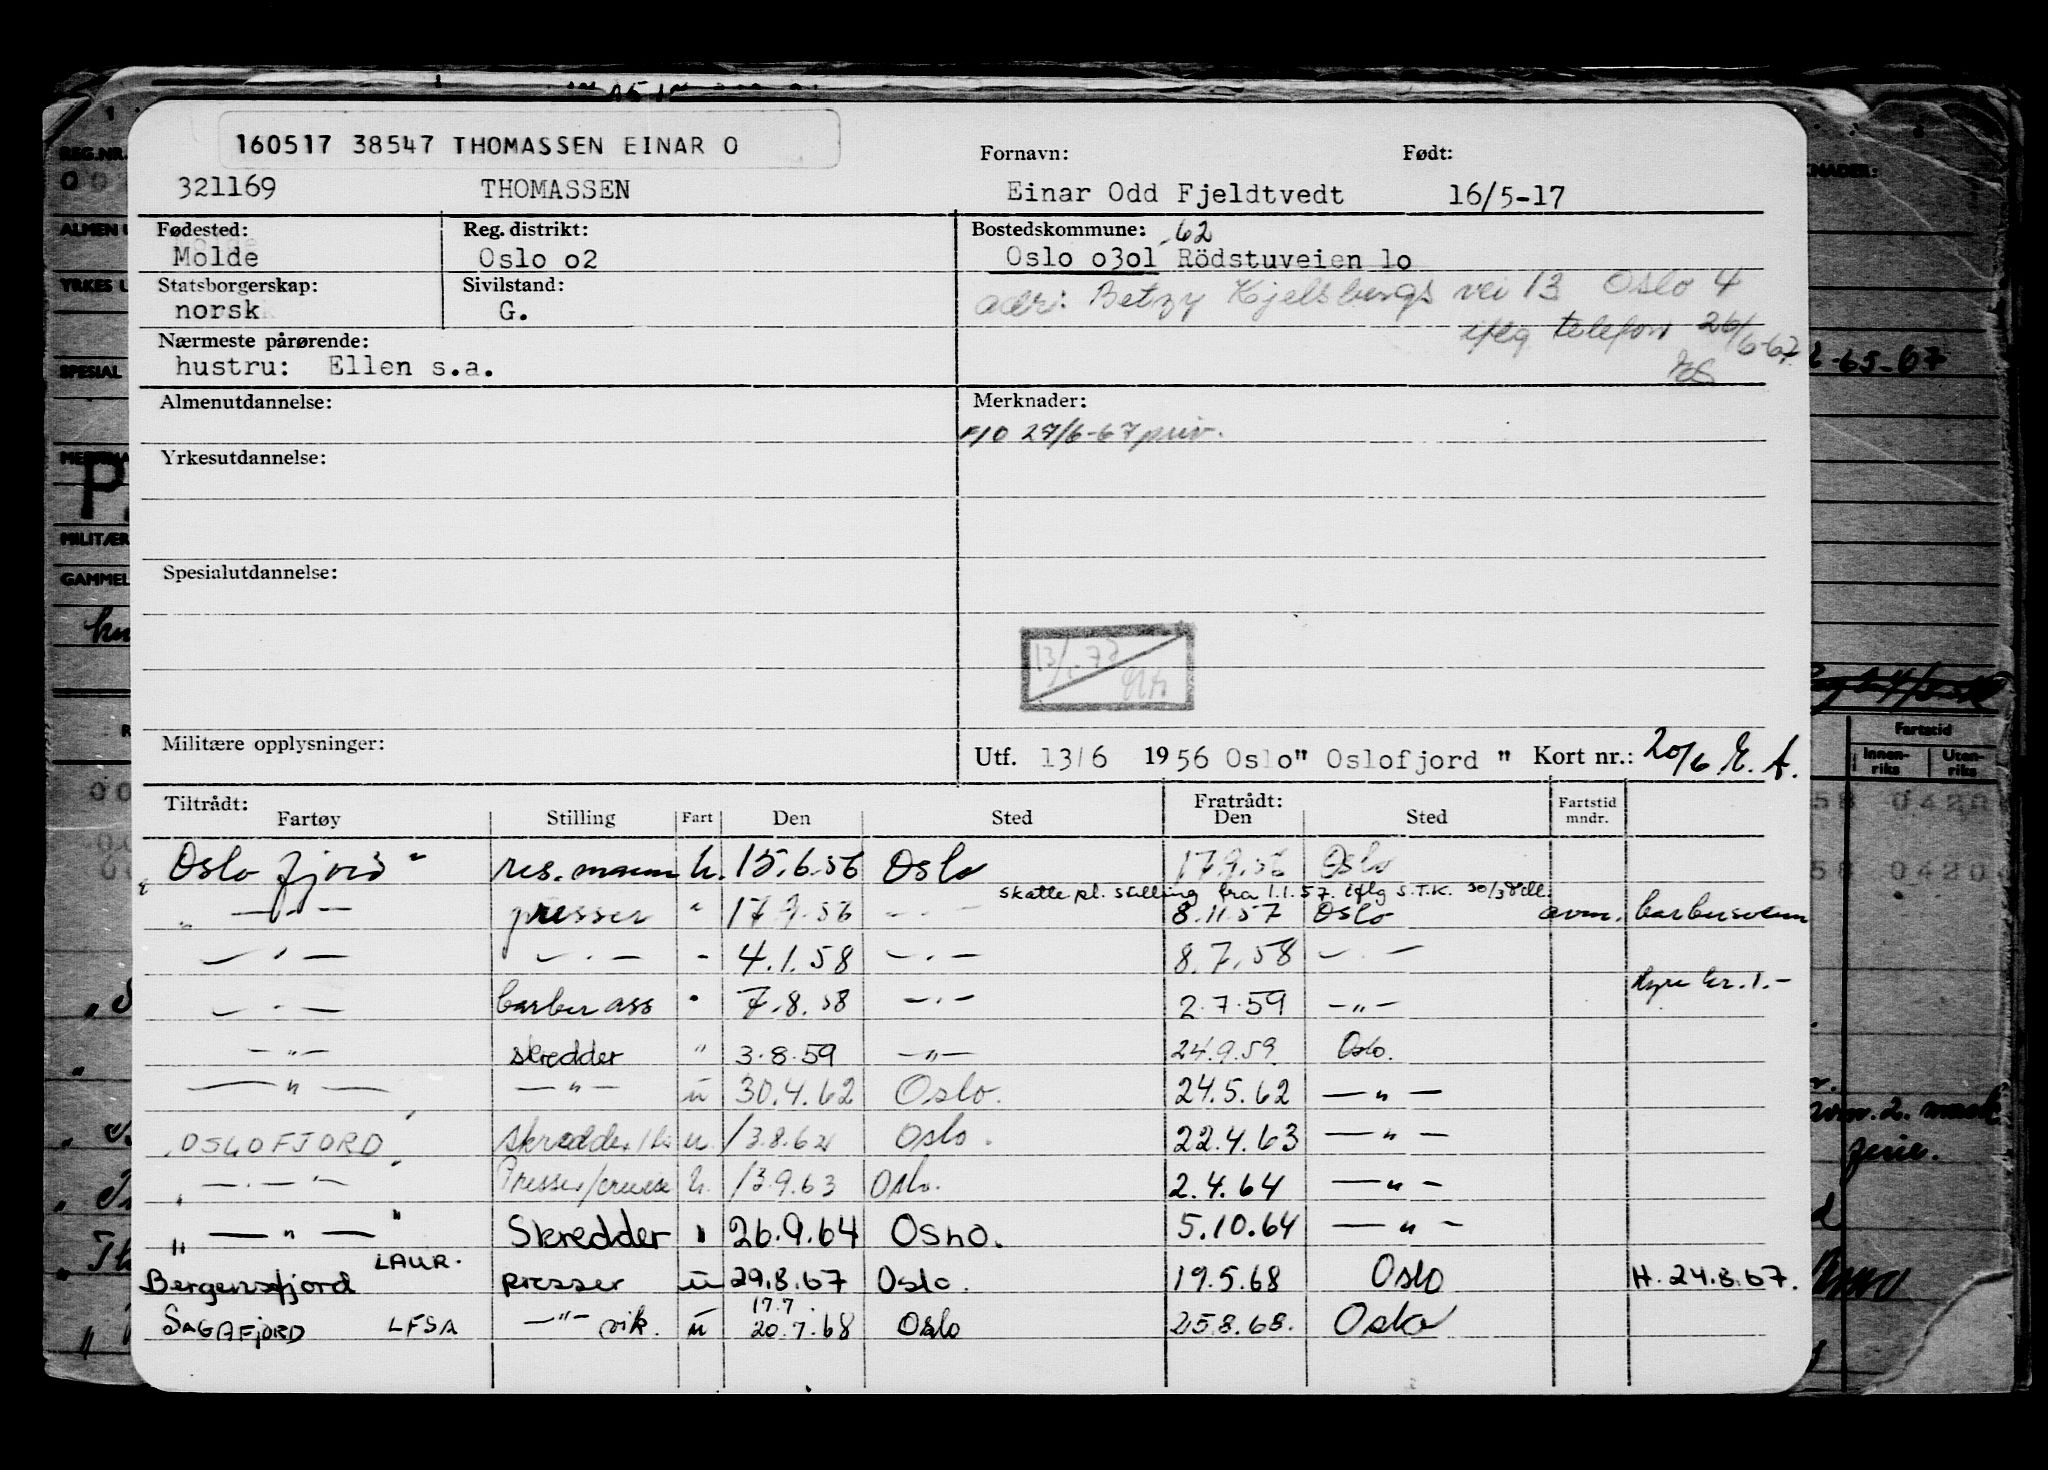 160517 38547 THOMASSEN EINAR O
Fornavn: Født:
321169 THOMASSEN Einar Odd Fjeldtvedt 16/5-17
Fødested: Reg. distrikt: Bostedskommune: -62
Molde Oslo o2 Oslo o3ol Rödstuveien lo
Statsborgerskap: Sivilstand:
norsk G.
adr: Betzy Kjelsbergs vei 13 Oslo 4
iflg telefon 26/6-67
Nærmeste pårørende:
hustru: Ellen s.a.
Almenutdannelse: Merknader:
F/O 27/6-67 priv.
Yrkesutdannelse:
Spesialutdannelse:
Militære opplysninger: Utf. 13/6 1956 Oslo" Oslofjord " Kort nr.: 20/6 E. A.
Tiltrådt: Fratrådt: Fartstid mndr.
Fartøy Stilling Fart Den Sted Den Sted
"Oslofjord" res.mann u. 15.6.56 Oslo 17.9.56 Oslo
skattepl. stilling fra 1.1.57. iflg S.T.K. 30/3
" — " — presser " 17.9.56 — " — 8.11.57 Oslo avm. barbersvenn
— " — — " — " 4.1.58 — " — 8.7.58 — " —
hyre kr. 1.-
— " — barber ass " 7.8.58 — " — 2.7.59 — " —
— " — skredder " 3.8.59 — " — 24.9.59 Oslo.
— " — — " — u 30.4.62 Oslo. 24.5.62 — " —
"OSLOFJORD" skredder u. 13.8.62 Oslo. 22.4.63 — " —
" — " — " Presser/cruise u. 13.9.63 Oslo. 2.4.64 — " —
" — " — " Skredder " 26.9.64 OSLO. 5.10.64 — " —
Bergensfjord LAUR. presser u 29.8.67 Oslo. 19.5.68 Oslo H. 24.8.67.
17.7
SAGAFJORD LFSA — " — vik. u 20.7.68 Oslo 25.8.68. Oslo